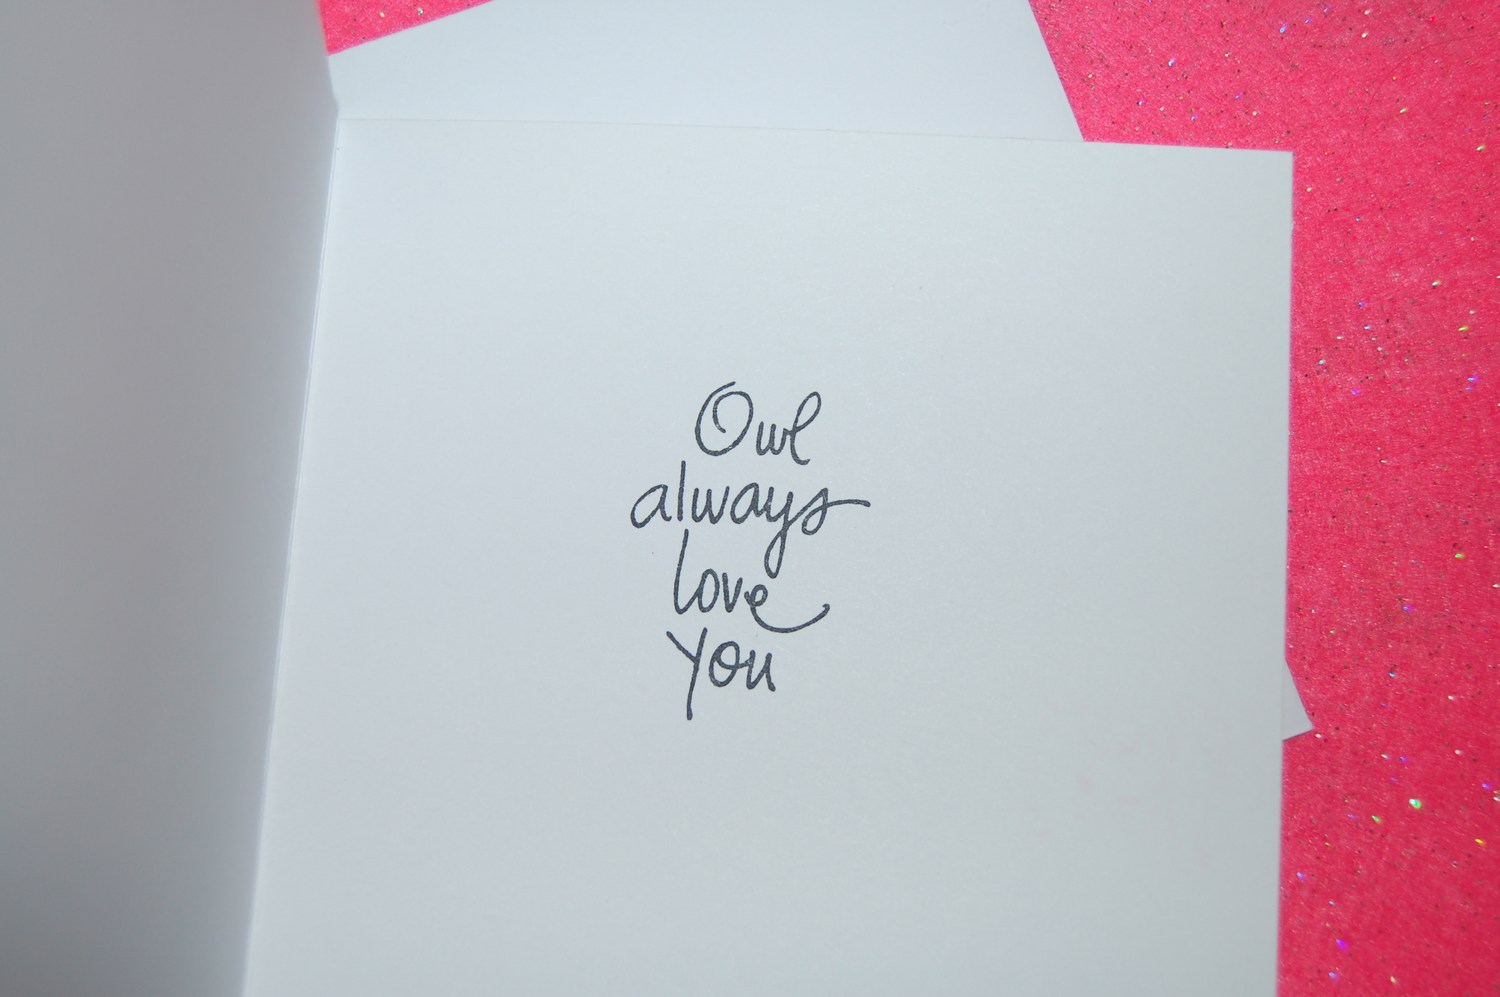 Owl
always
love
you